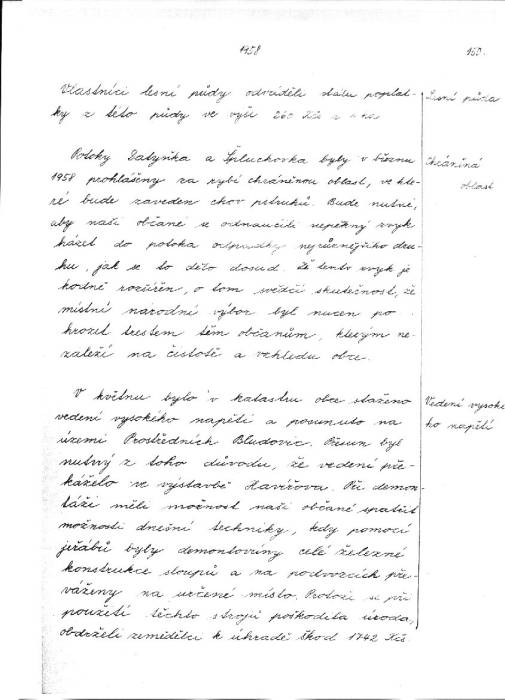 1958
Vlastníci lesní půdy odváděli státu poplat-
ky z této půdy ve výši 260 Kčs z 1 ha
Lesní půda
Potoky Datyňka a Špluchovka byly v březnu
1958 prohlášeny za rybí chráněnou oblast, ve kte-
ré bude zaveden chov pstruhů. Bude nutné,
aby naši občané se odnaučili nepěkný zvyk
házet do potoka odpadky nejrůznějšího dru-
hu, jak se to dělo dosud. Že tento zvyk je
hodně rozšířen, o tom svědčí skutečnost, že
místní národní výbor byl nucen po
hrozit trestem těm občanům, kterým ne-
záleží na čistotě a vzhledu obce.
Chráněná
oblast
V květnu bylo v katastru obce staženo
vedení vysokého napětí a posunuto na
území Prostředních Bludovic. Přesun byl
nutný z toho důvodu, že vedení pře-
káželo ve výstavbě Havířova. Při demon-
táži měli možnost naši občané spatřit
možnosti dnešní techniky, kdy pomocí
jeřábů byly demontovány celé železné
konstrukce sloupů a na podvozcích pře-
váženy na určené místo. Protože se při
použití těchto strojů poškodila úroda,
obdrželi zemědělci k úhradě škod 1742 Kčs
Vedení vysoké
ho napětí